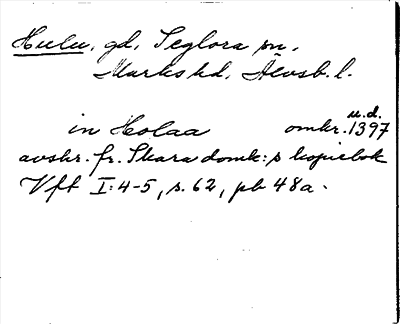 Hulu, gd, Seglora sn,
Marks hd, Älvsb. l.
in Holaa omkr. 1397 u.d.
avskr. fr. Skara domk:s kopiebok
Vft I:4-5, s. 62, pb 48a.